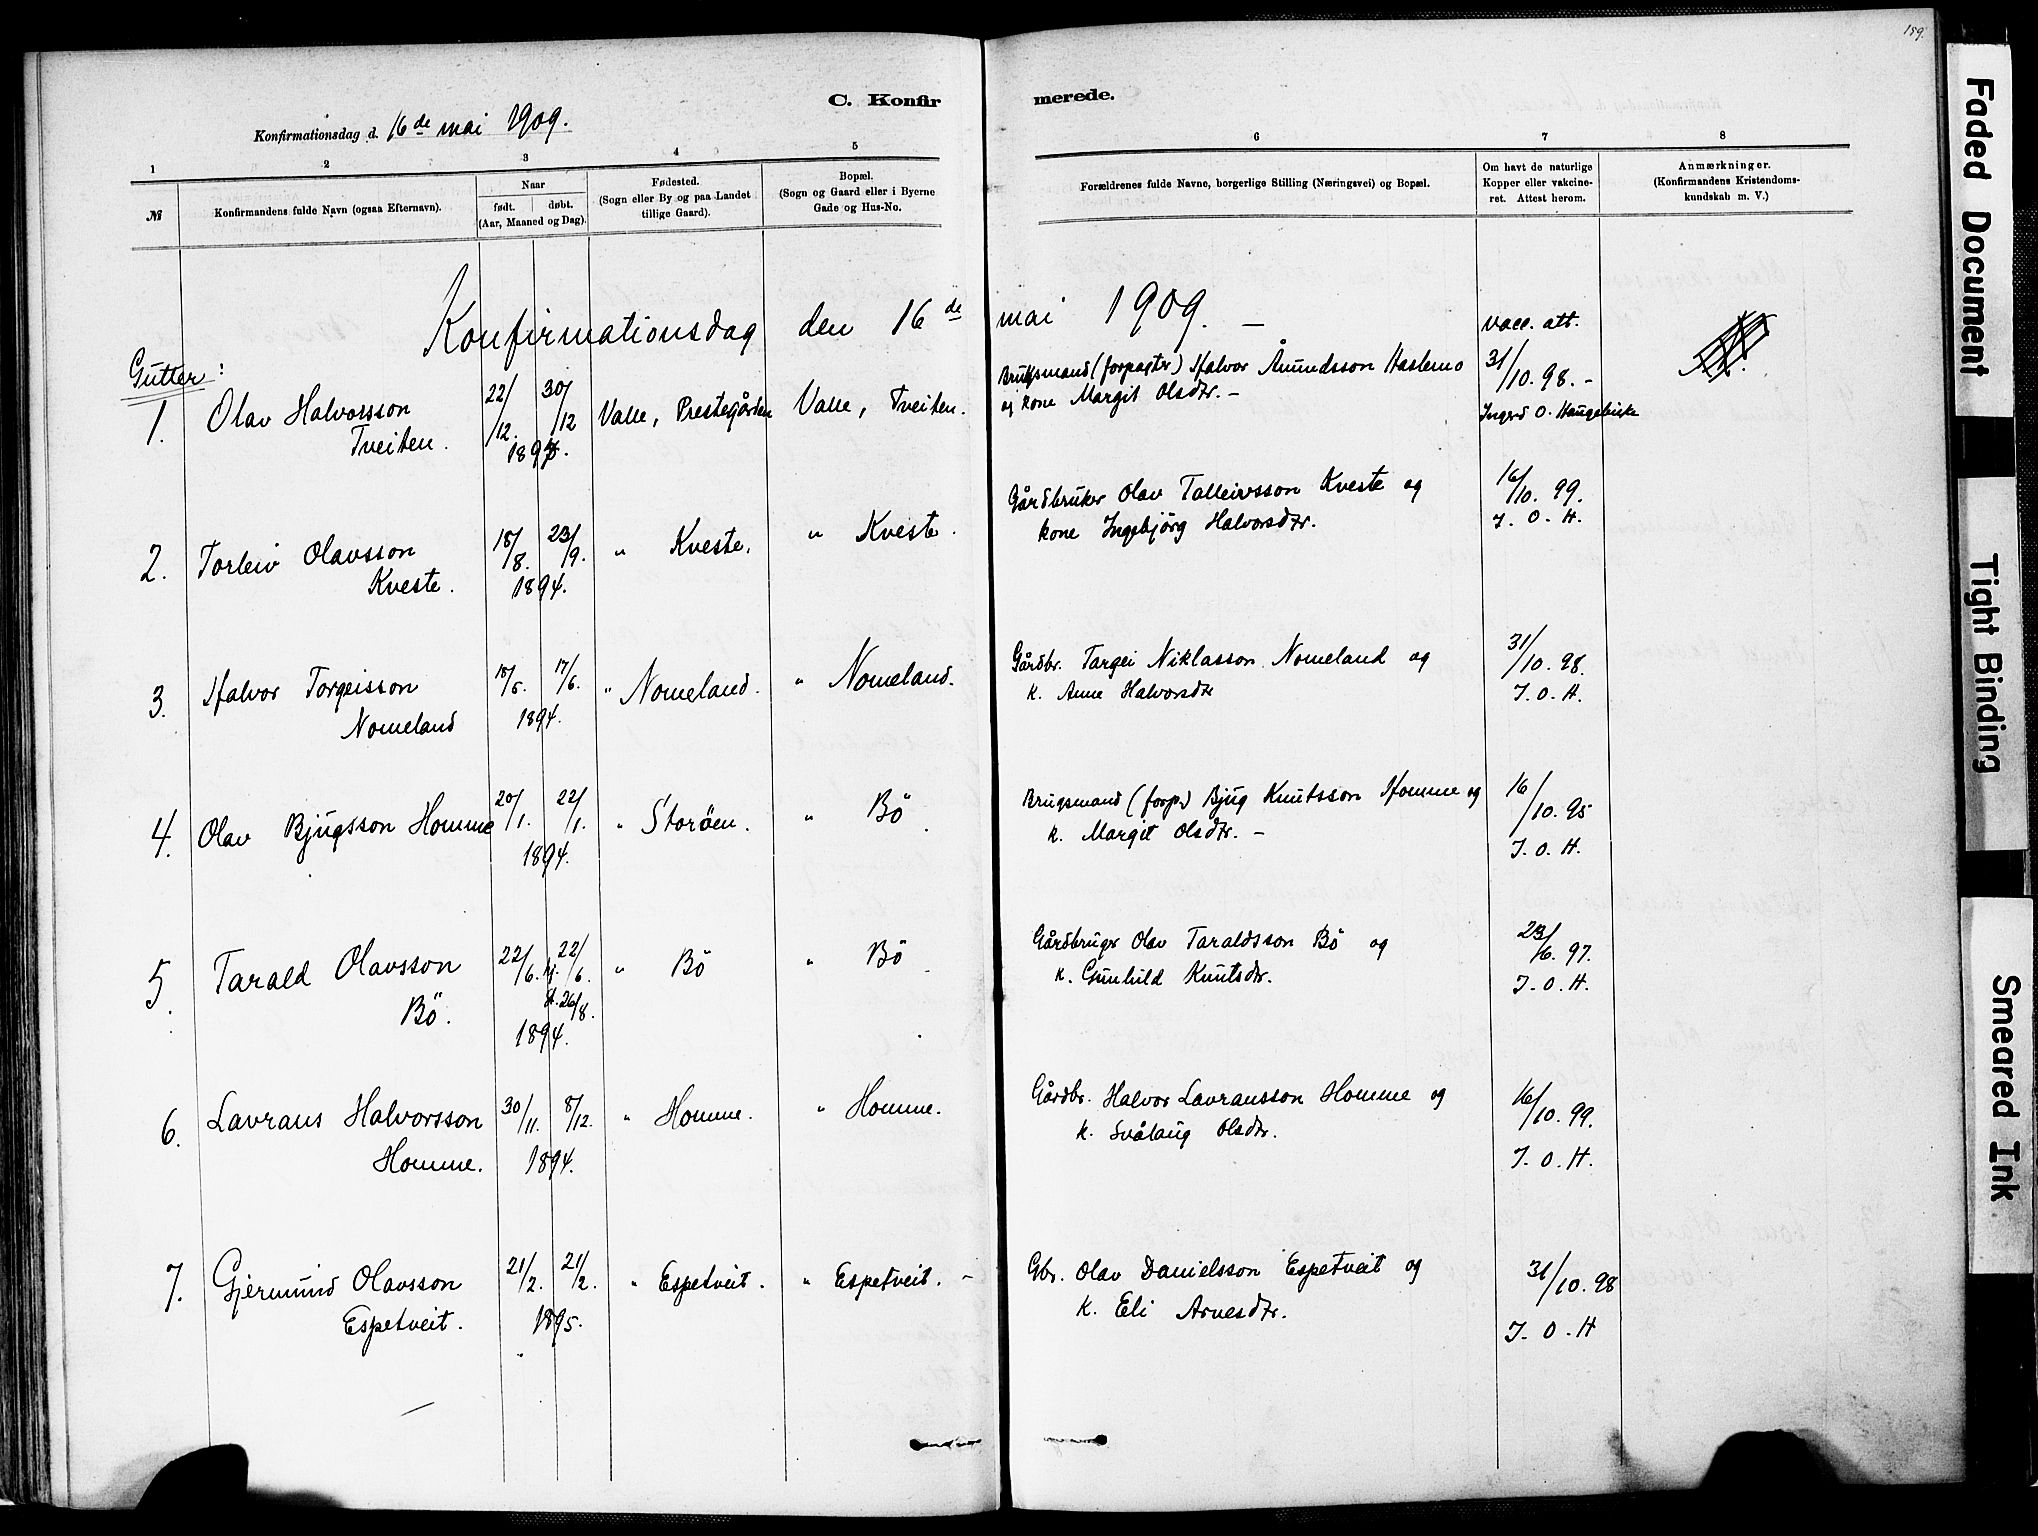 159.
C. Konfir
merede.
Konfirmationsdag d. 16de mai 1909.
1 2 3 4 5 6 7 8
№
Konfirmandens fulde Navn (ogsaa Efternavn).
Naar
født. døbt.
(Aar, Maaned og Dag).
Fødested.
(Sogn eller By og paa Landet
tillige Gaard).
Bopæl.
(Sogn og Gaard eller i Byerne
Gade og Hus-No.
Forældrenes fulde Navne, borgerlige Stilling (Næringsvei) og Bopæl.
Om havt de naturlige
Kopper eller vakcine-
ret. Attest herom.
Anmærkninger.
(Konfirmandens Kristendoms-
kundskab m. V.)
Konfirmationsdag den 16de mai 1909. –
vacc. att.
Gutter:
1. Olav Halvorsson
Tveiten.
22/12. 30/12
189
Valle, Prestegården
Valle, Tveiten.
Brugsmand (forpagter) Halvor Åmundsson Haslemo
og kone Margit Olsdtr. –
31/10. 98. –
Ingerd O. Haugebirke
2. Torleiv Olavsson
Kveste.
18/8. 23/9.
1894.
" Kveste.
" Kveste.
Gårdbruker Olav Talleivsson Kveste og
kone Ingebjörg Halvorsdtr.
16/10. 99.
J. O. H.
3. Halvor Torgeisson
Nomeland
18/5. 17/6.
1894.
" Nomeland.
" Nomeland.
Gårdbr. Targei Niklasson Nomeland og
k. Anne Halvorsdtr
31/10. 98.
J. O. H.
4. Olav Bjugsson Homme
20/1. 22/1.
1894.
" Storöen.
" Bö.
Brugsmand (forp.) Bjug Knutsson Homme og
k. Margit Olsdtr. –
16/10. 95
J. O. H.
5. Tarald Olavsson
Bö.
22/6. hj. 22/6.
st. 26/8.
1894.
" Bö
" Bö
Gårdbruger Olav Taraldsson Bö og
k. Gunhild Knutsdtr.
23/6. 97.
J. O. H.
6. Lavrans Halvorsson
Homme.
30/11. 8/12.
1894.
" Homme.
" Homme.
Gårdbr. Halvor Lavransson Homme og
k. Svålaug Olsdtr.
16/10. 99.
J. O. H.
7. Gjermund Olavsson
Espetveit.
21/2. 21/2.
1895.
" Espetveit.
" Espetveit. –
Gbr. Olav Danielsson Espetveit og
k. Eli Arnesdtr.
31/10. 98
J. O. H
Faded Document
Tight Binding
Smeared Ink